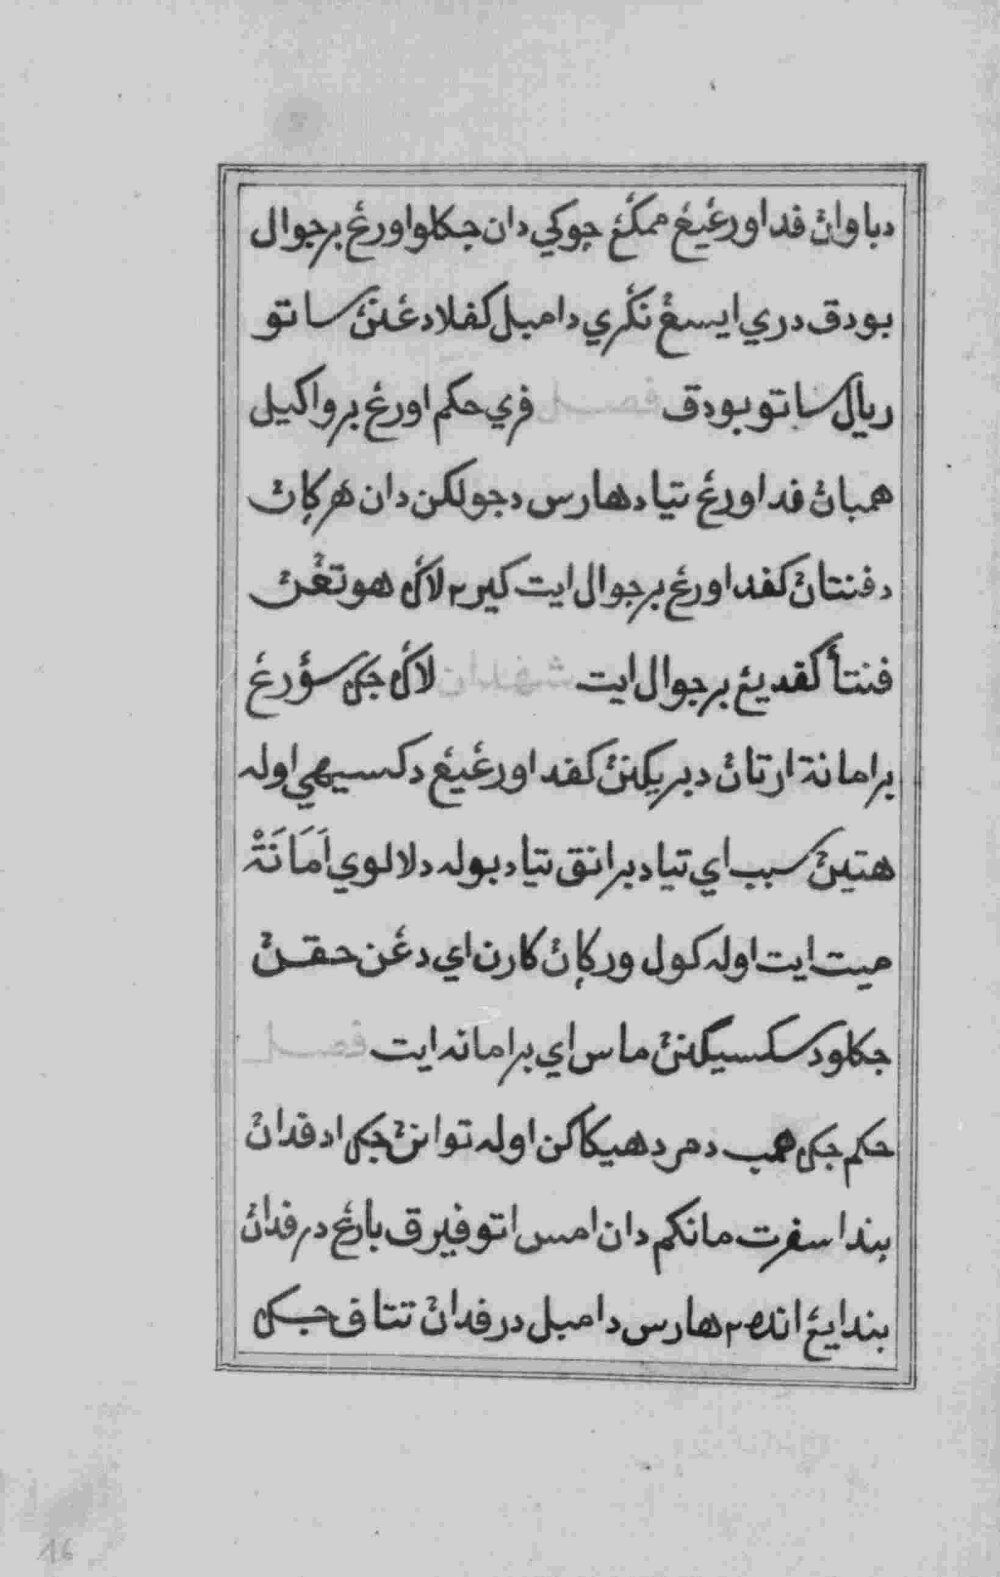 دباواڽ فد اورڠيڠ ممݢڠ چوكي دان جكلو اورڠ برجوال
بودق دري ايسيڠ نݢري دامبل كفلا دڠنڽ ساتو
ريال ساتو بودق فري حكم اورڠ برواكيل
همباڽ فد اورڠ تياد هارس دجولكن دان هركاڽ
دفنتاڽ كفد اورڠ برجوال ايت كير٢ لاݢي هوتڠڽ
فنتأ كفد يڠ برجوال ايت لاݢي جك سؤرڠ
برامانة ارتاڽ دبريكنڽ كفد اورڠيڠ دكسيهي اوله
هتيڽ سبب اي تياد برانق تياد بوله دلالوي اَمَانَةْ
ميت ايت اوله كول وركاڽ كارن اي دڠن حقڽ
جكلو دسكسيكنڽ ماس اي برامانه ايت فصل
حكم جك همب دمردهيكاكن اوله تواڽ جك اد فداڽ
بندا سفرت مانكم دان امس اتو فيرق بارڠ درفداڽ
بندا يڠ انده٢ هارس دامبل درفداڽ تتاف جك
16